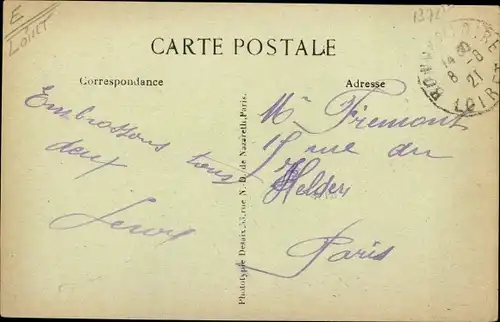 E
Loiret
CARTE POSTALE
Correspondance
Adresse
BONN
LOIRE
14
8 -8
21
LOIRET
Embrassons tous
deux
Leroy
Phototypie Desaix, 33, rue N.-D. de Nazareth, Paris.
Mr Fremont
rue du
Helder
Paris